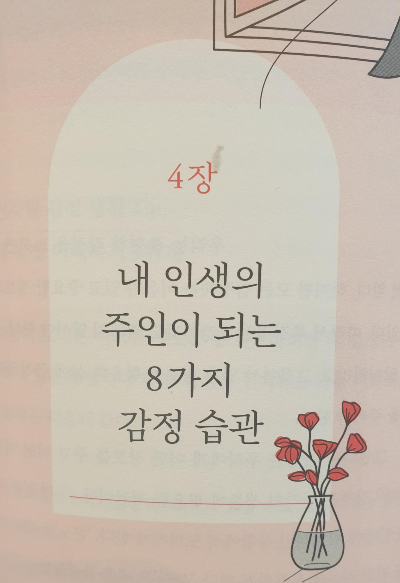 4장
내 인생의
주인이 되는
8가지
감정 습관